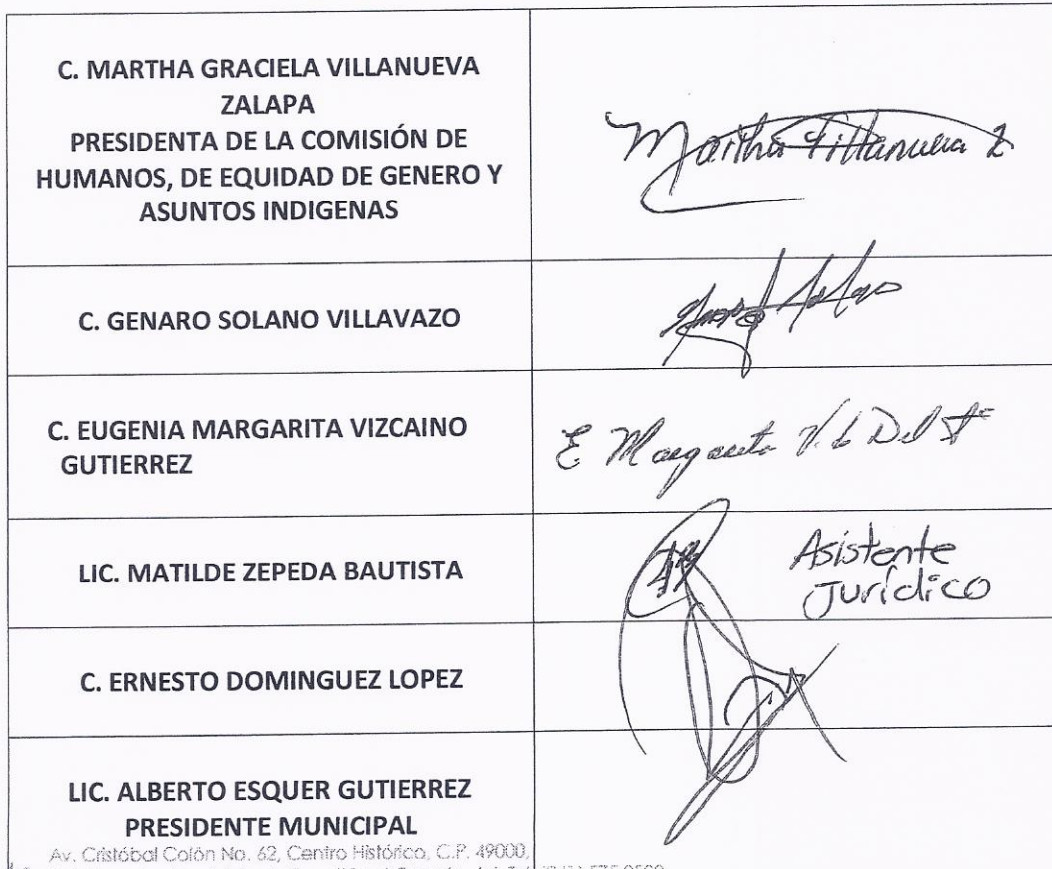 C. MARTHA GRACIELA VILLANUEVA
ZALAPA
PRESIDENTA DE LA COMISIÓN DE
HUMANOS, DE EQUIDAD DE GENERO Y
ASUNTOS INDIGENAS
Martha Villanueva Z
C. GENARO SOLANO VILLAVAZO
C. EUGENIA MARGARITA VIZCAINO
GUTIERREZ
E Margarita V. de Del
LIC. MATILDE ZEPEDA BAUTISTA
Asistente
Jurídico
C. ERNESTO DOMINGUEZ LOPEZ
LIC. ALBERTO ESQUER GUTIERREZ
PRESIDENTE MUNICIPAL
Av. Cristóbal Colón No. 62, Centro Histórico, C.P. 49000,